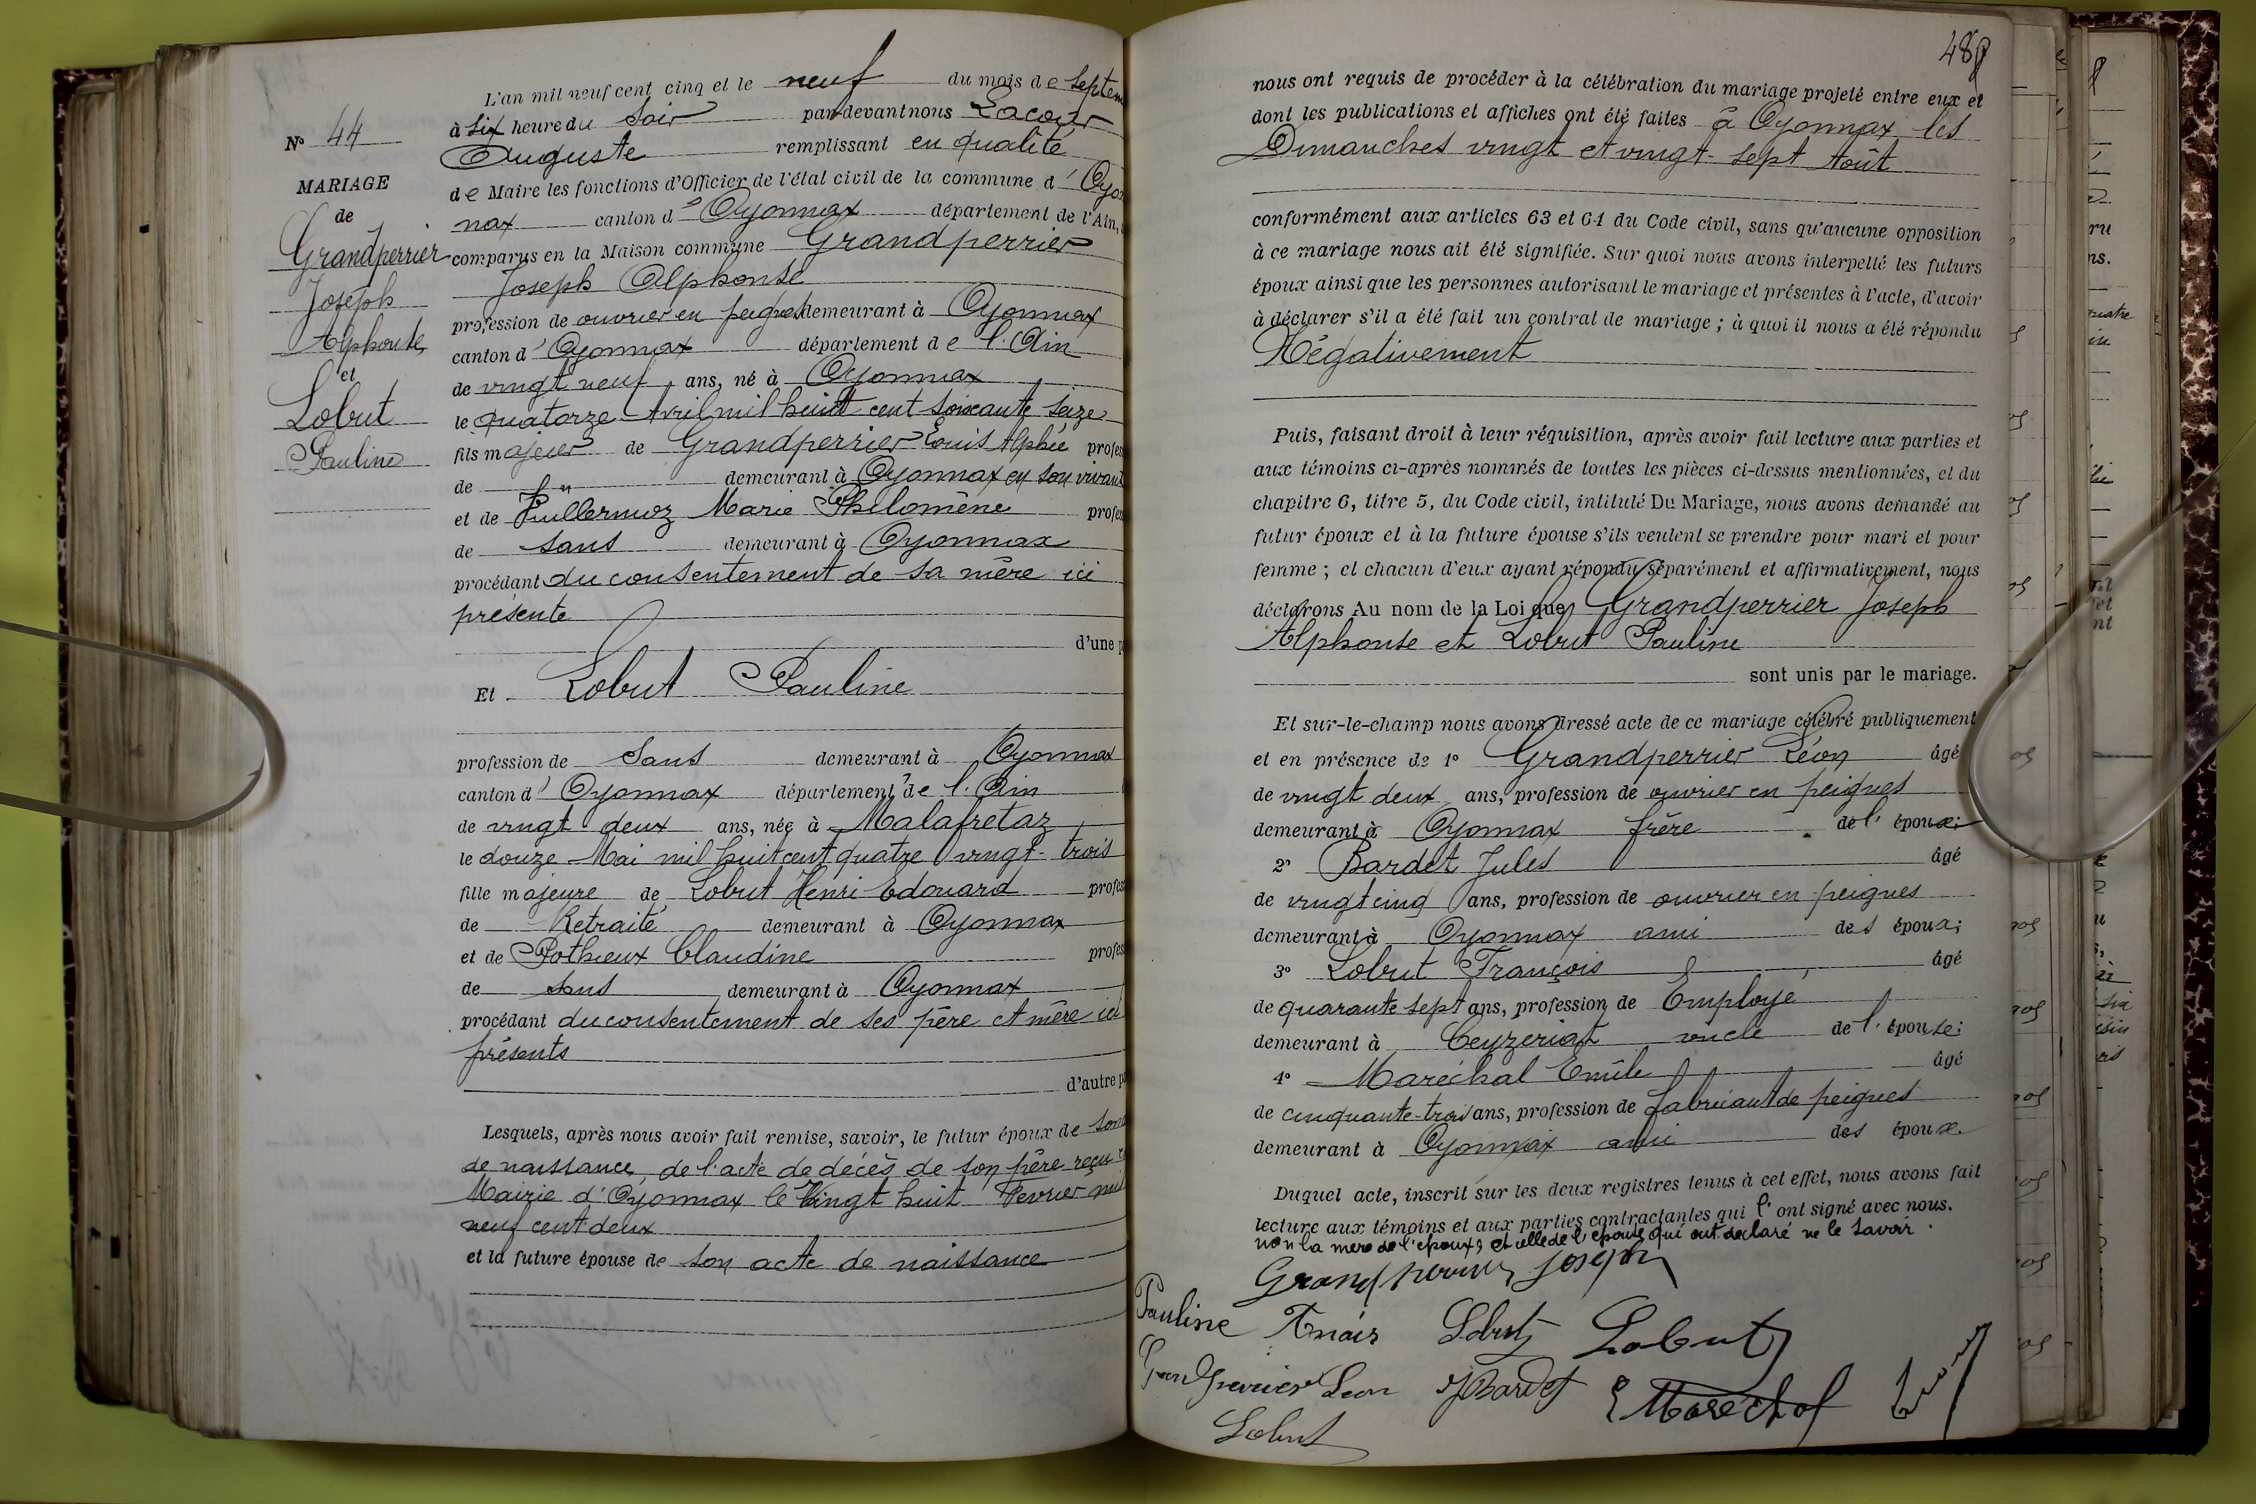 L'an mil neuf cent cinq et le neuf du mois de septem
à six heure du soir par-devant nous Lacour
Auguste remplissant en qualité
de Maire les fonctions d'Officier de l'état civil de la commune d'Oyon
nax canton d'Oyonnax département de l'Ain,
comparus en la Maison commune Grandperrier
Joseph Alphonse
profession de ouvrier en peignes demeurant à Oyonnax
canton d'Oyonnax département de l'Ain
de vingt neuf ans, né à Oyonnax
le quatorze Avril mil huit cent soixante seize
fils majeur de Grandperrier Louis Alphée profes
de demeurant à Oyonnax en son vivant
et de Puillermoz Marie Philomène profes
de sans demeurant à Oyonnax
procédant du consentement de sa mère ici
présente
d'une p
Et Lobut Pauline
profession de Sans demeurant à Oyonnax
canton d'Oyonnax département de l'Ain
de vingt deux ans, née à Malafretaz
le douze Mai mil huit cent quatre vingt-trois
fille majeure de Lobut Henri Edouard profes
de Retraité demeurant à Oyonnax
et de Pothieux Claudine profes
de sans demeurant à Oyonnax
procédant du consentement de ses père et mère ici
présents
d'autre pa
Lesquels, après nous avoir fait remise, savoir, le futur époux de son
de naissance, de l'acte de décès de son père reçu
Mairie d'Oyonnax le Vingt huit Février mil
neuf cent deux
et la future épouse de son acte de naissance
No 44
MARIAGE
de
Grandperrier
Joseph
Alphonse
et
Lobut
Pauline
488
nous ont requis de procéder à la célébration du mariage projeté entre eux et
dont les publications et affiches ont été faites à Oyonnax les
Dimanches vingt et vingt-sept Août
conformément aux articles 63 et 64 du Code civil, sans qu'aucune opposition
à ce mariage nous ait été signifiée. Sur quoi nous avons interpellé les futurs
époux ainsi que les personnes autorisant le mariage et présentes à l'acte, d'avoir
à déclarer s'il a été fait un contrat de mariage ; à quoi il nous a été répondu
Négativement
Puis, faisant droit à leur réquisition, après avoir fait lecture aux parties et
aux témoins ci-après nommés de toutes les pièces ci-dessus mentionnées, et du
chapitre 6, titre 5, du Code civil, intitulé Du Mariage, nous avons demandé au
futur époux et à la future épouse s'ils veulent se prendre pour mari et pour
femme ; et chacun d'eux ayant répondu séparément et affirmativement, nous
déclarons Au nom de la Loi que Grandperrier Joseph
Alphonse et Lobut Pauline
sont unis par le mariage.
Et sur-le-champ nous avons dressé acte de ce mariage célébré publiquement
et en présence de 1° Grandperrier Léon âgé
de vingt deux ans, profession de ouvrier en peignes
demeurant à Oyonnax frère de l'époux;
2° Bardet Jules âgé
de vingt cinq ans, profession de ouvrier en peignes
demeurant à Oyonnax ami des époux;
3° Lobut François âgé
de quarante sept ans, profession de Employé
demeurant à Ceyzeriat oncle de l'épouse;
4° Maréchal Emile âgé
de cinquante-trois ans, profession de fabricant de peignes
demeurant à Oyonnax ami des époux.
Duquel acte, inscrit sur les deux registres tenus à cet effet, nous avons fait
lecture aux témoins et aux parties contractantes qui l'ont signé avec nous.
non la mère de l'époux, et celle de l'épouse, qui ont déclaré ne le savoir.
Grandperrier Joseph
Pauline Anaïs Lobut Lobut
Grandperrier Leon J Bardet E Maréchal
Lobut